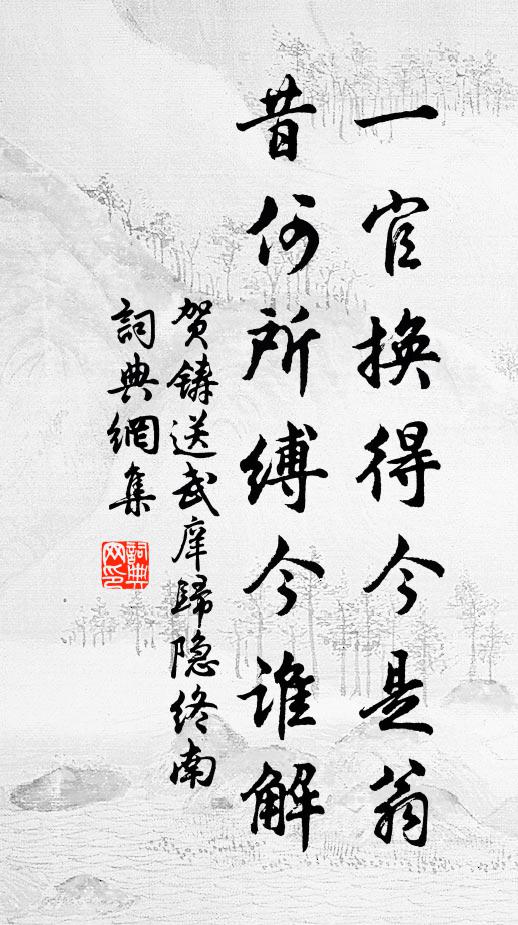 一官換得今是翁
昔何所縛今誰解
贺鑄送武庠歸隐终南
詞典網集
詞典网印